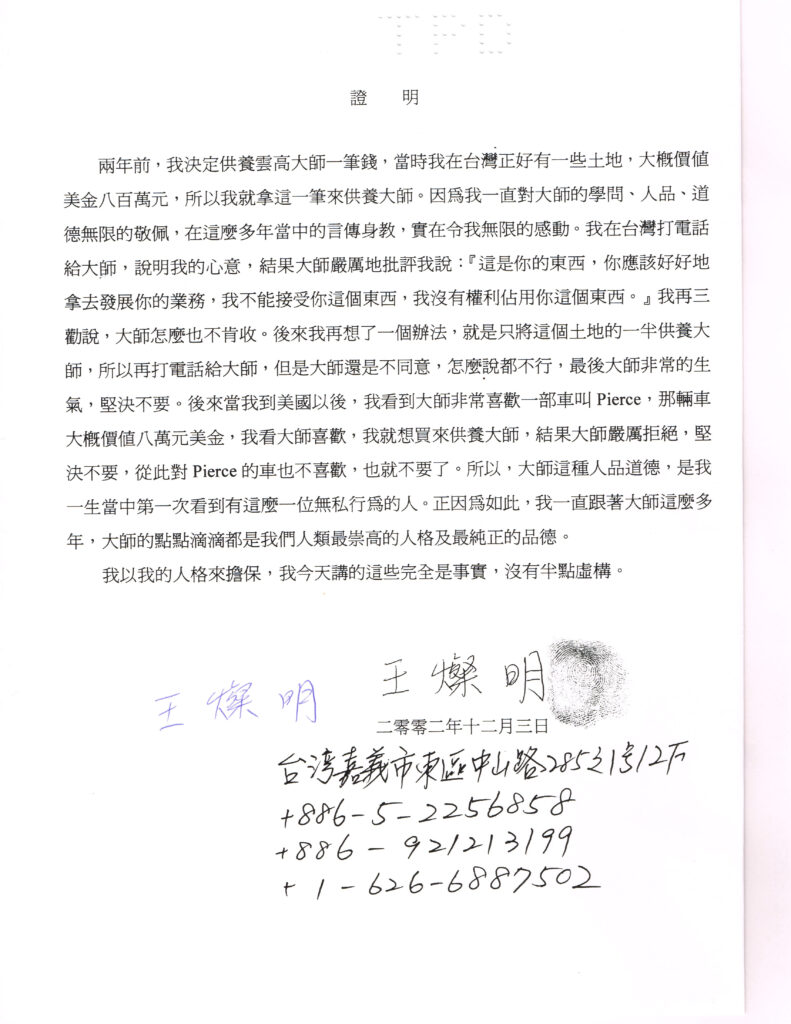 TPD
證 明
兩年前，我決定供養雲高大師一筆錢，當時我在台灣正好有一些土地，大概價值
美金八百萬元，所以我就拿這一筆來供養大師。因爲我一直對大師的學問、人品、道
德無限的敬佩，在這麼多年當中的言傳身教，實在令我無限的感動。我在台灣打電話
給大師，說明我的心意，結果大師嚴厲地批評我說：『這是你的東西，你應該好好地
拿去發展你的業務，我不能接受你這個東西，我沒有權利佔用你這個東西。』我再三
勸說，大師怎麼也不肯收。後來我再想了一個辦法，就是只將這個土地的一半供養大
師，所以再打電話給大師，但是大師還是不同意，怎麼說都不行，最後大師非常的生
氣，堅決不要。後來當我到美國以後，我看到大師非常喜歡一部車叫 Pierce，那輛車
大概價值八萬元美金，我看大師喜歡，我就想買來供養大師，結果大師嚴厲拒絕，堅
決不要，從此對 Pierce 的車也不喜歡，也就不要了。所以，大師這種人品道德，是我
一生當中第一次看到有這麼一位無私行爲的人。正因爲如此，我一直跟著大師這麼多
年，大師的點點滴滴都是我們人類最崇高的人格及最純正的品德。
我以我的人格來擔保，我今天講的這些完全是事實，沒有半點虛構。
王燦明
王燦明
二零零二年十二月三日
台湾嘉義市東區中山路285之1号12F
+886-5-2256858
+886-921213199
+1-626-6887502